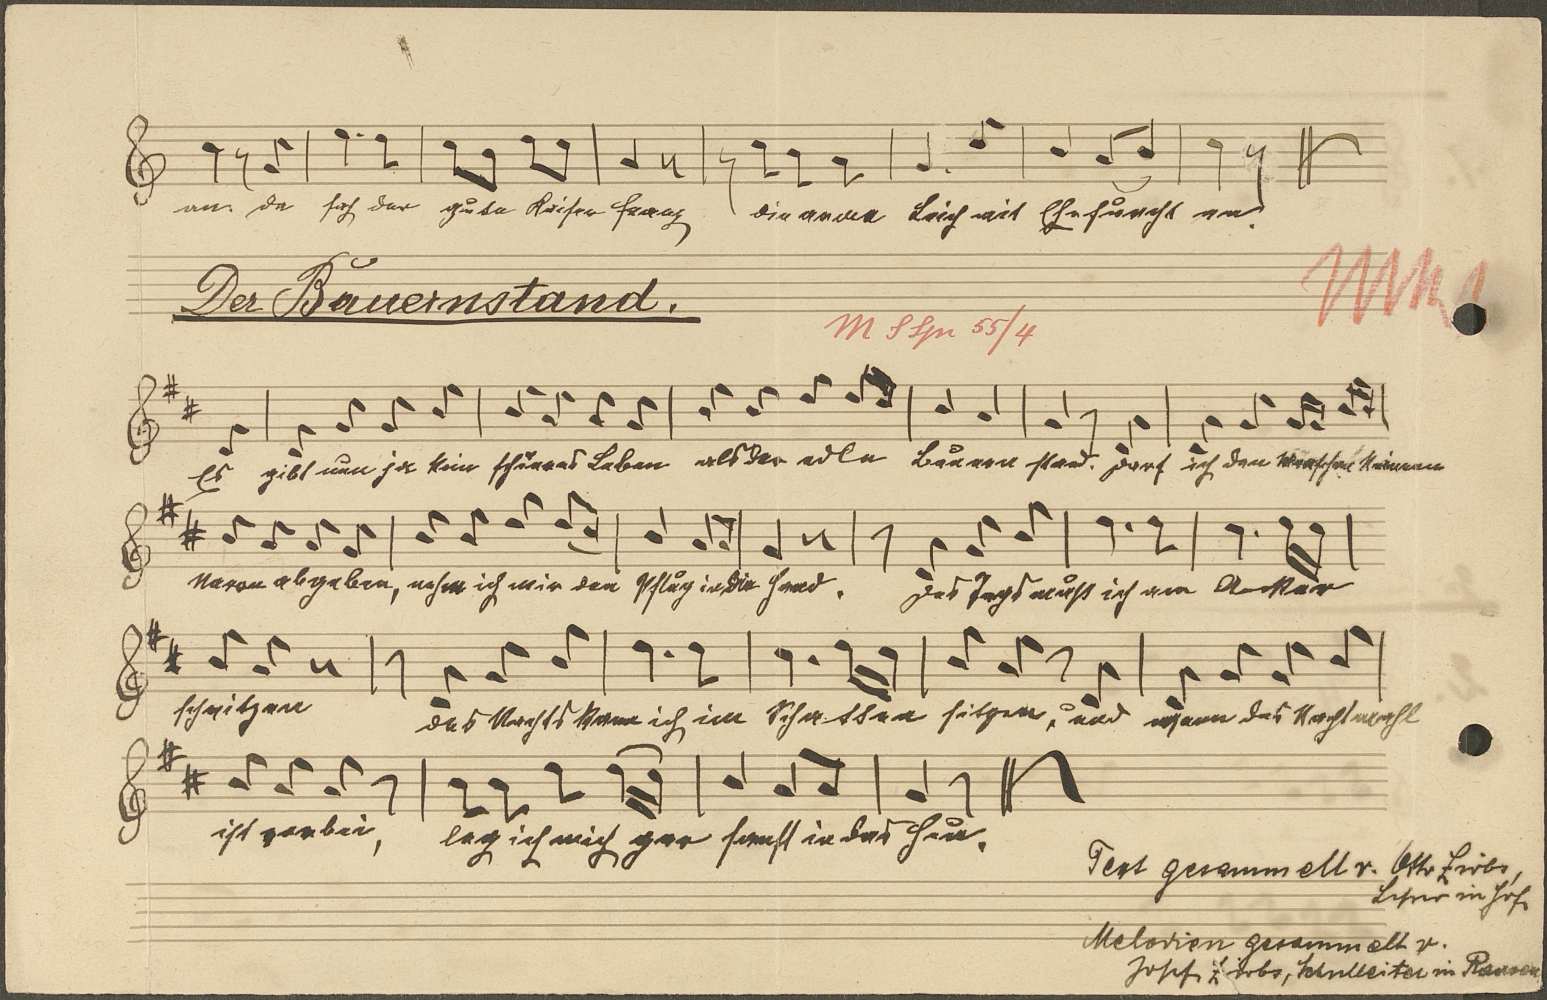 an. da sah der gute Kaiser Franz die arme Leich mit Ehrfurcht an.
Der Bauernstand.
55/4
Es gibt nun ja kein schöneres Leben als der edle Bauernstand. Darf ich den Menschen keinem
abgeben, nehm ich mir den Pflug in die Hand. Des Tags muß ich am Acker
schwitzen des Nachts kann ich im Schatten sitzen, und wenn das Nachtmahl
ist vorbei, leg ich mich gar sanft in das Heu.
Text gesammelt v. Otto Zirbs,
Lehrer in Hof
Melodien gesammelt v.
Josef Zirbs, Schulleiter in